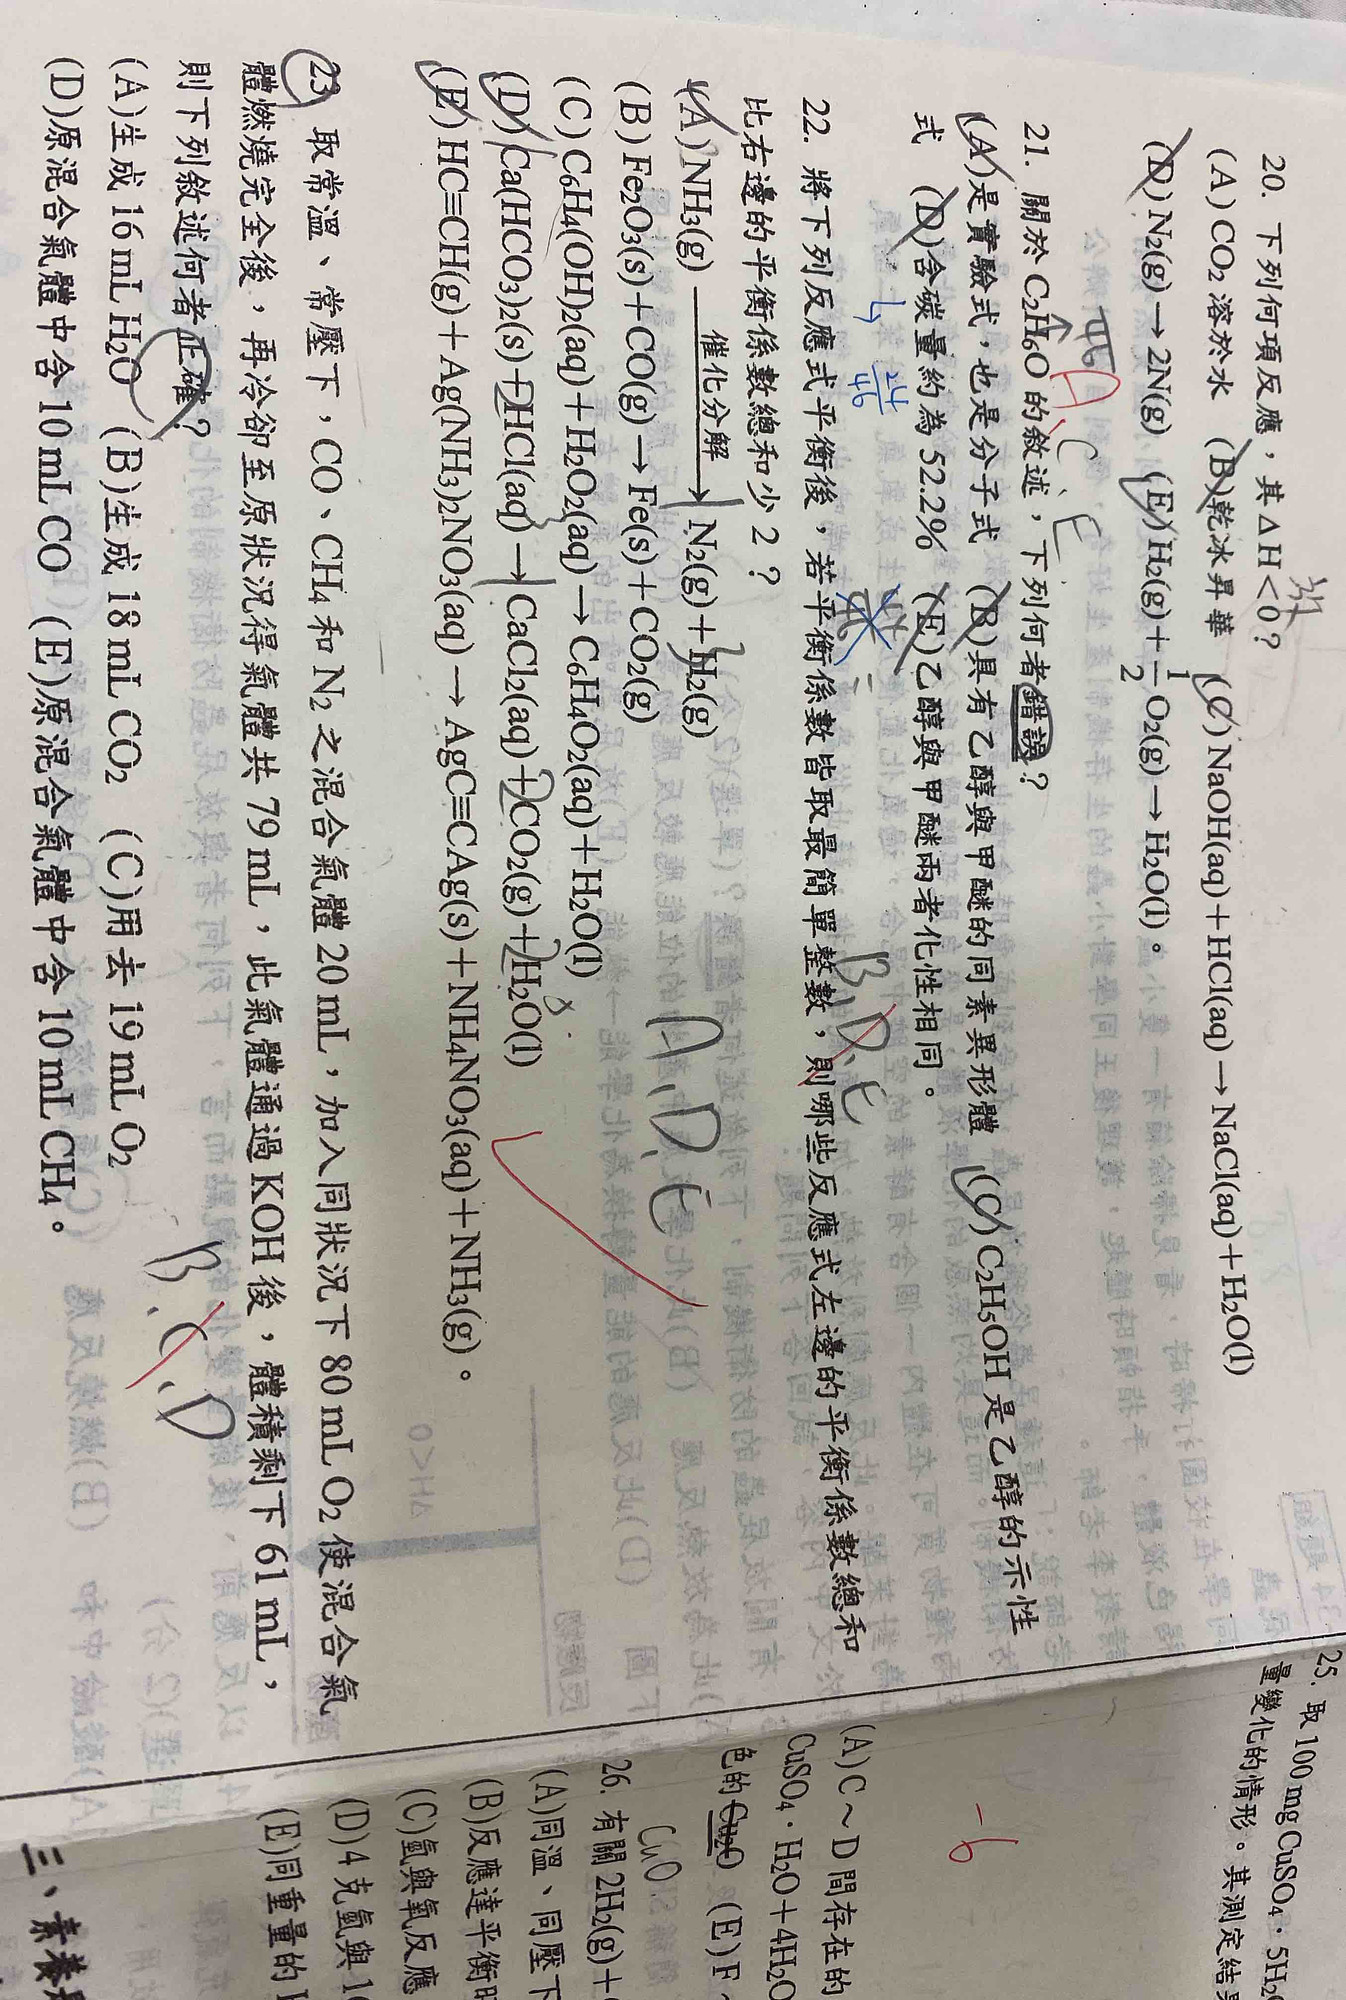 20. 下列何項反應，其ΔH<0？
(A) CO2 溶於水 (B)乾冰昇華 (C) NaOH(aq)+HCl(aq)→NaCl(aq)+H2O(l)
(D) N2(g)→2N(g) (E) H2(g)+1/2 O2(g)→H2O(l)。
A、C、E
21. 關於 C2H6O 的敘述，下列何者錯誤？
(A)是實驗式，也是分子式 (B)具有乙醇與甲醚的同素異形體 (C) C2H5OH 是乙醇的示性
式 (D)含碳量約為 52.2% (E)乙醇與甲醚兩者化性相同。
24/46
B、D、E
22. 將下列反應式平衡後，若平衡係數皆取最簡單整數，則哪些反應式左邊的平衡係數總和
比右邊的平衡係數總和少 2？
(A) NH3(g) 催化分解→ N2(g)+H2(g)
(B) Fe2O3(s)+CO(g)→Fe(s)+CO2(g)
(C) C6H4(OH)2(aq)+H2O2(aq)→C6H4O2(aq)+H2O(l)
(D) Ca(HCO3)2(s)+HCl(aq)→CaCl2(aq)+CO2(g)+H2O(l)
(E) HC≡CH(g)+Ag(NH3)2NO3(aq)→AgC≡CAg(s)+NH4NO3(aq)+NH3(g)。
A、D、E
23. 取常溫、常壓下，CO、CH4 和 N2 之混合氣體 20 mL，加入同狀況下 80 mL O2 使混合氣
體燃燒完全後，再冷卻至原狀況得氣體共 79 mL，此氣體通過 KOH 後，體積剩下 61 mL，
則下列敘述何者正確？
(A)生成 16 mL H2O (B)生成 18 mL CO2 (C)用去 19 mL O2
(D)原混合氣體中含 10 mL CO (E)原混合氣體中含 10 mL CH4。
B、C、D
25. 取 100 mg CuSO4·5H2
量變化的情形。其測定結
-6
(A) C～D 間存在的
CuSO4·H2O+4H2O
色的 Cu2O (E) F
CuO
26. 有關 2H2(g)+
(A)同溫、同壓下
(B)反應達平衡時
(C)氫與氧反應
(D) 4 克氫與 1
(E)同重量的
三、素養